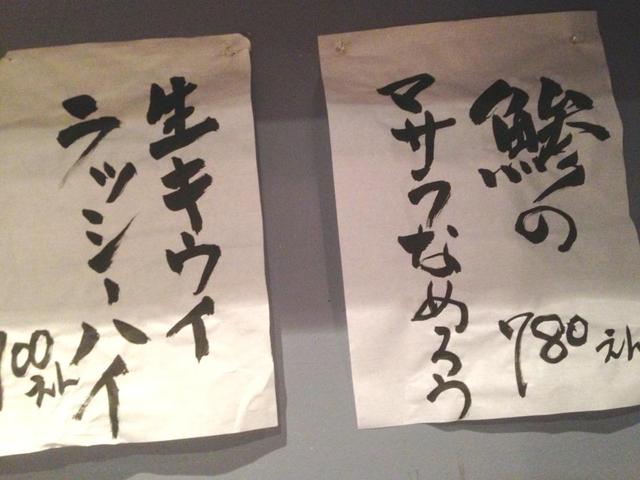 鯵の
マサラなめろう
780えん
生キウイ
ラッシーハイ
700えん